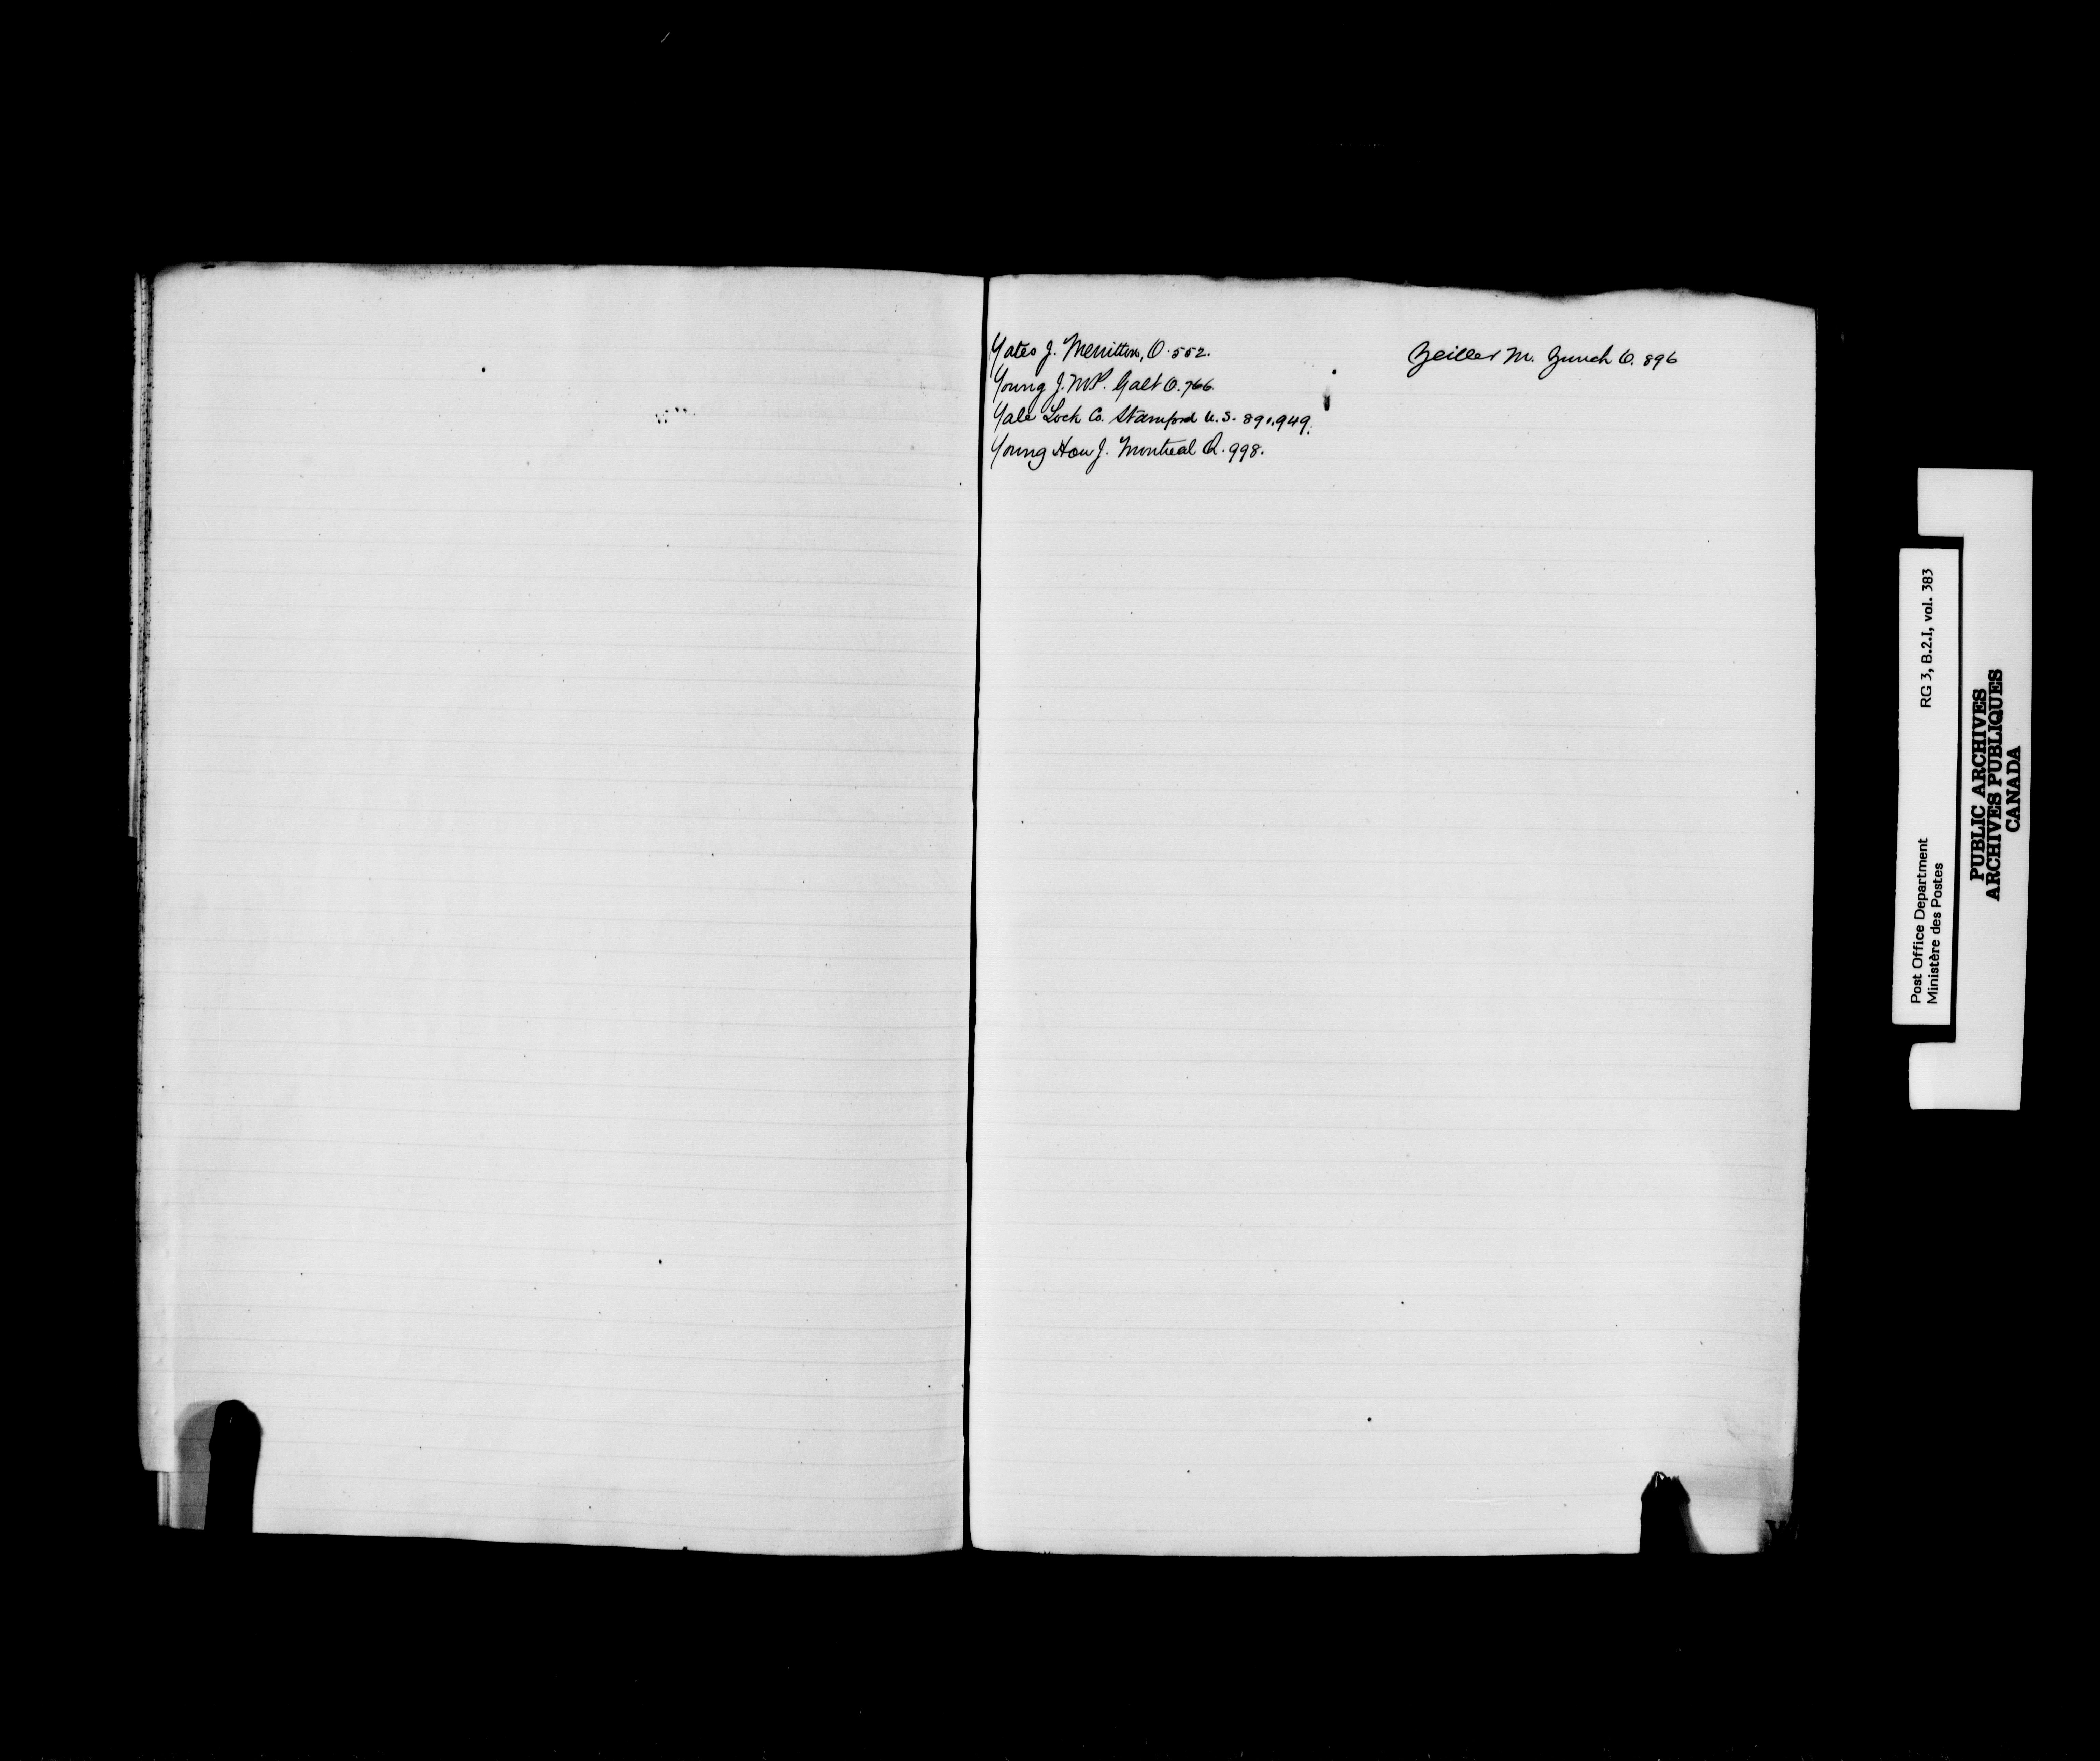 Yates J. Merritton, O. 552.
Young J. M.P. Galt O. 766.
Yale Lock Co. Stamford U.S. 891.949.
Young Hon J. Montreal Q. 998.
Zeiller M. Zurich O. 896
Post Office Department RG 3, B.2.I, vol. 383
Ministère des Postes
PUBLIC ARCHIVES
ARCHIVES PUBLIQUES
CANADA